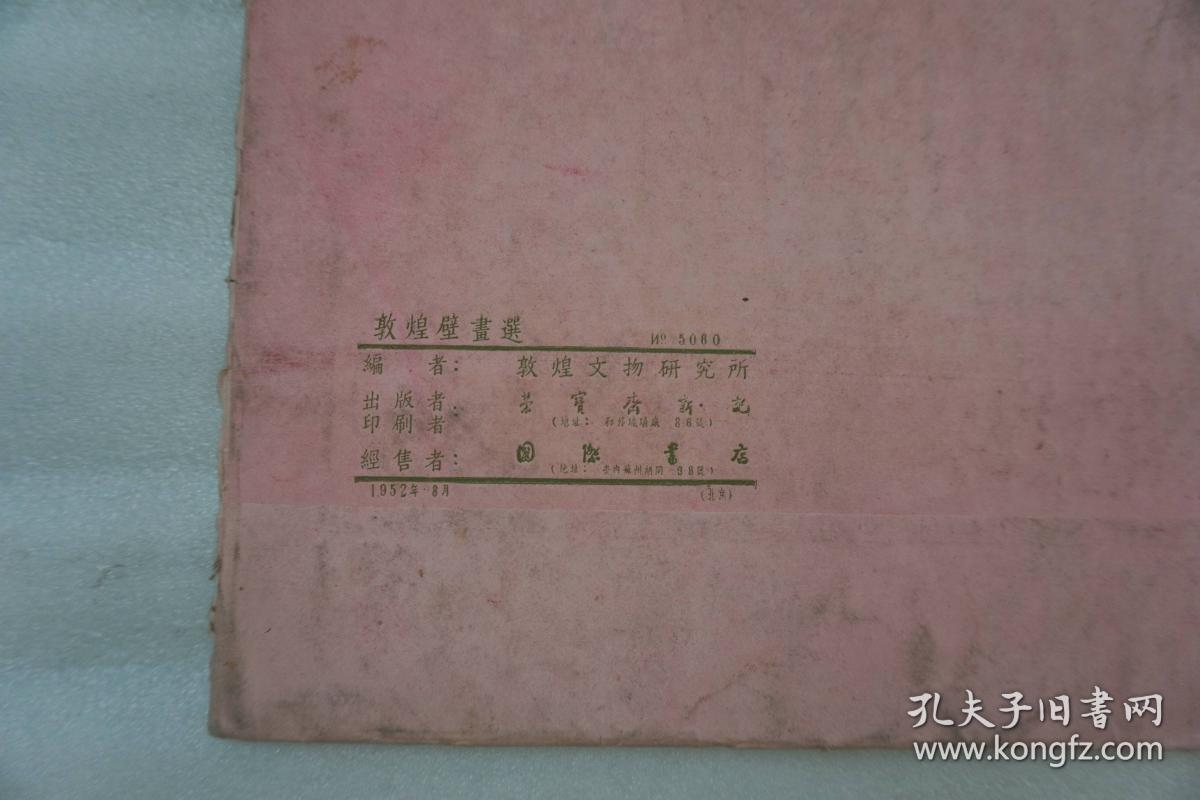 敦煌壁畫選 № 5060
編 者： 敦煌文物研究所
出版者 印刷者： 榮寶齋新記
(地址： 和平琉璃廠 86號)
經售者： 國際書店
(地址： 崇內蘇州胡同 98號)
1952年·8月 (北京)
孔夫子旧書网
www.kongfz.com